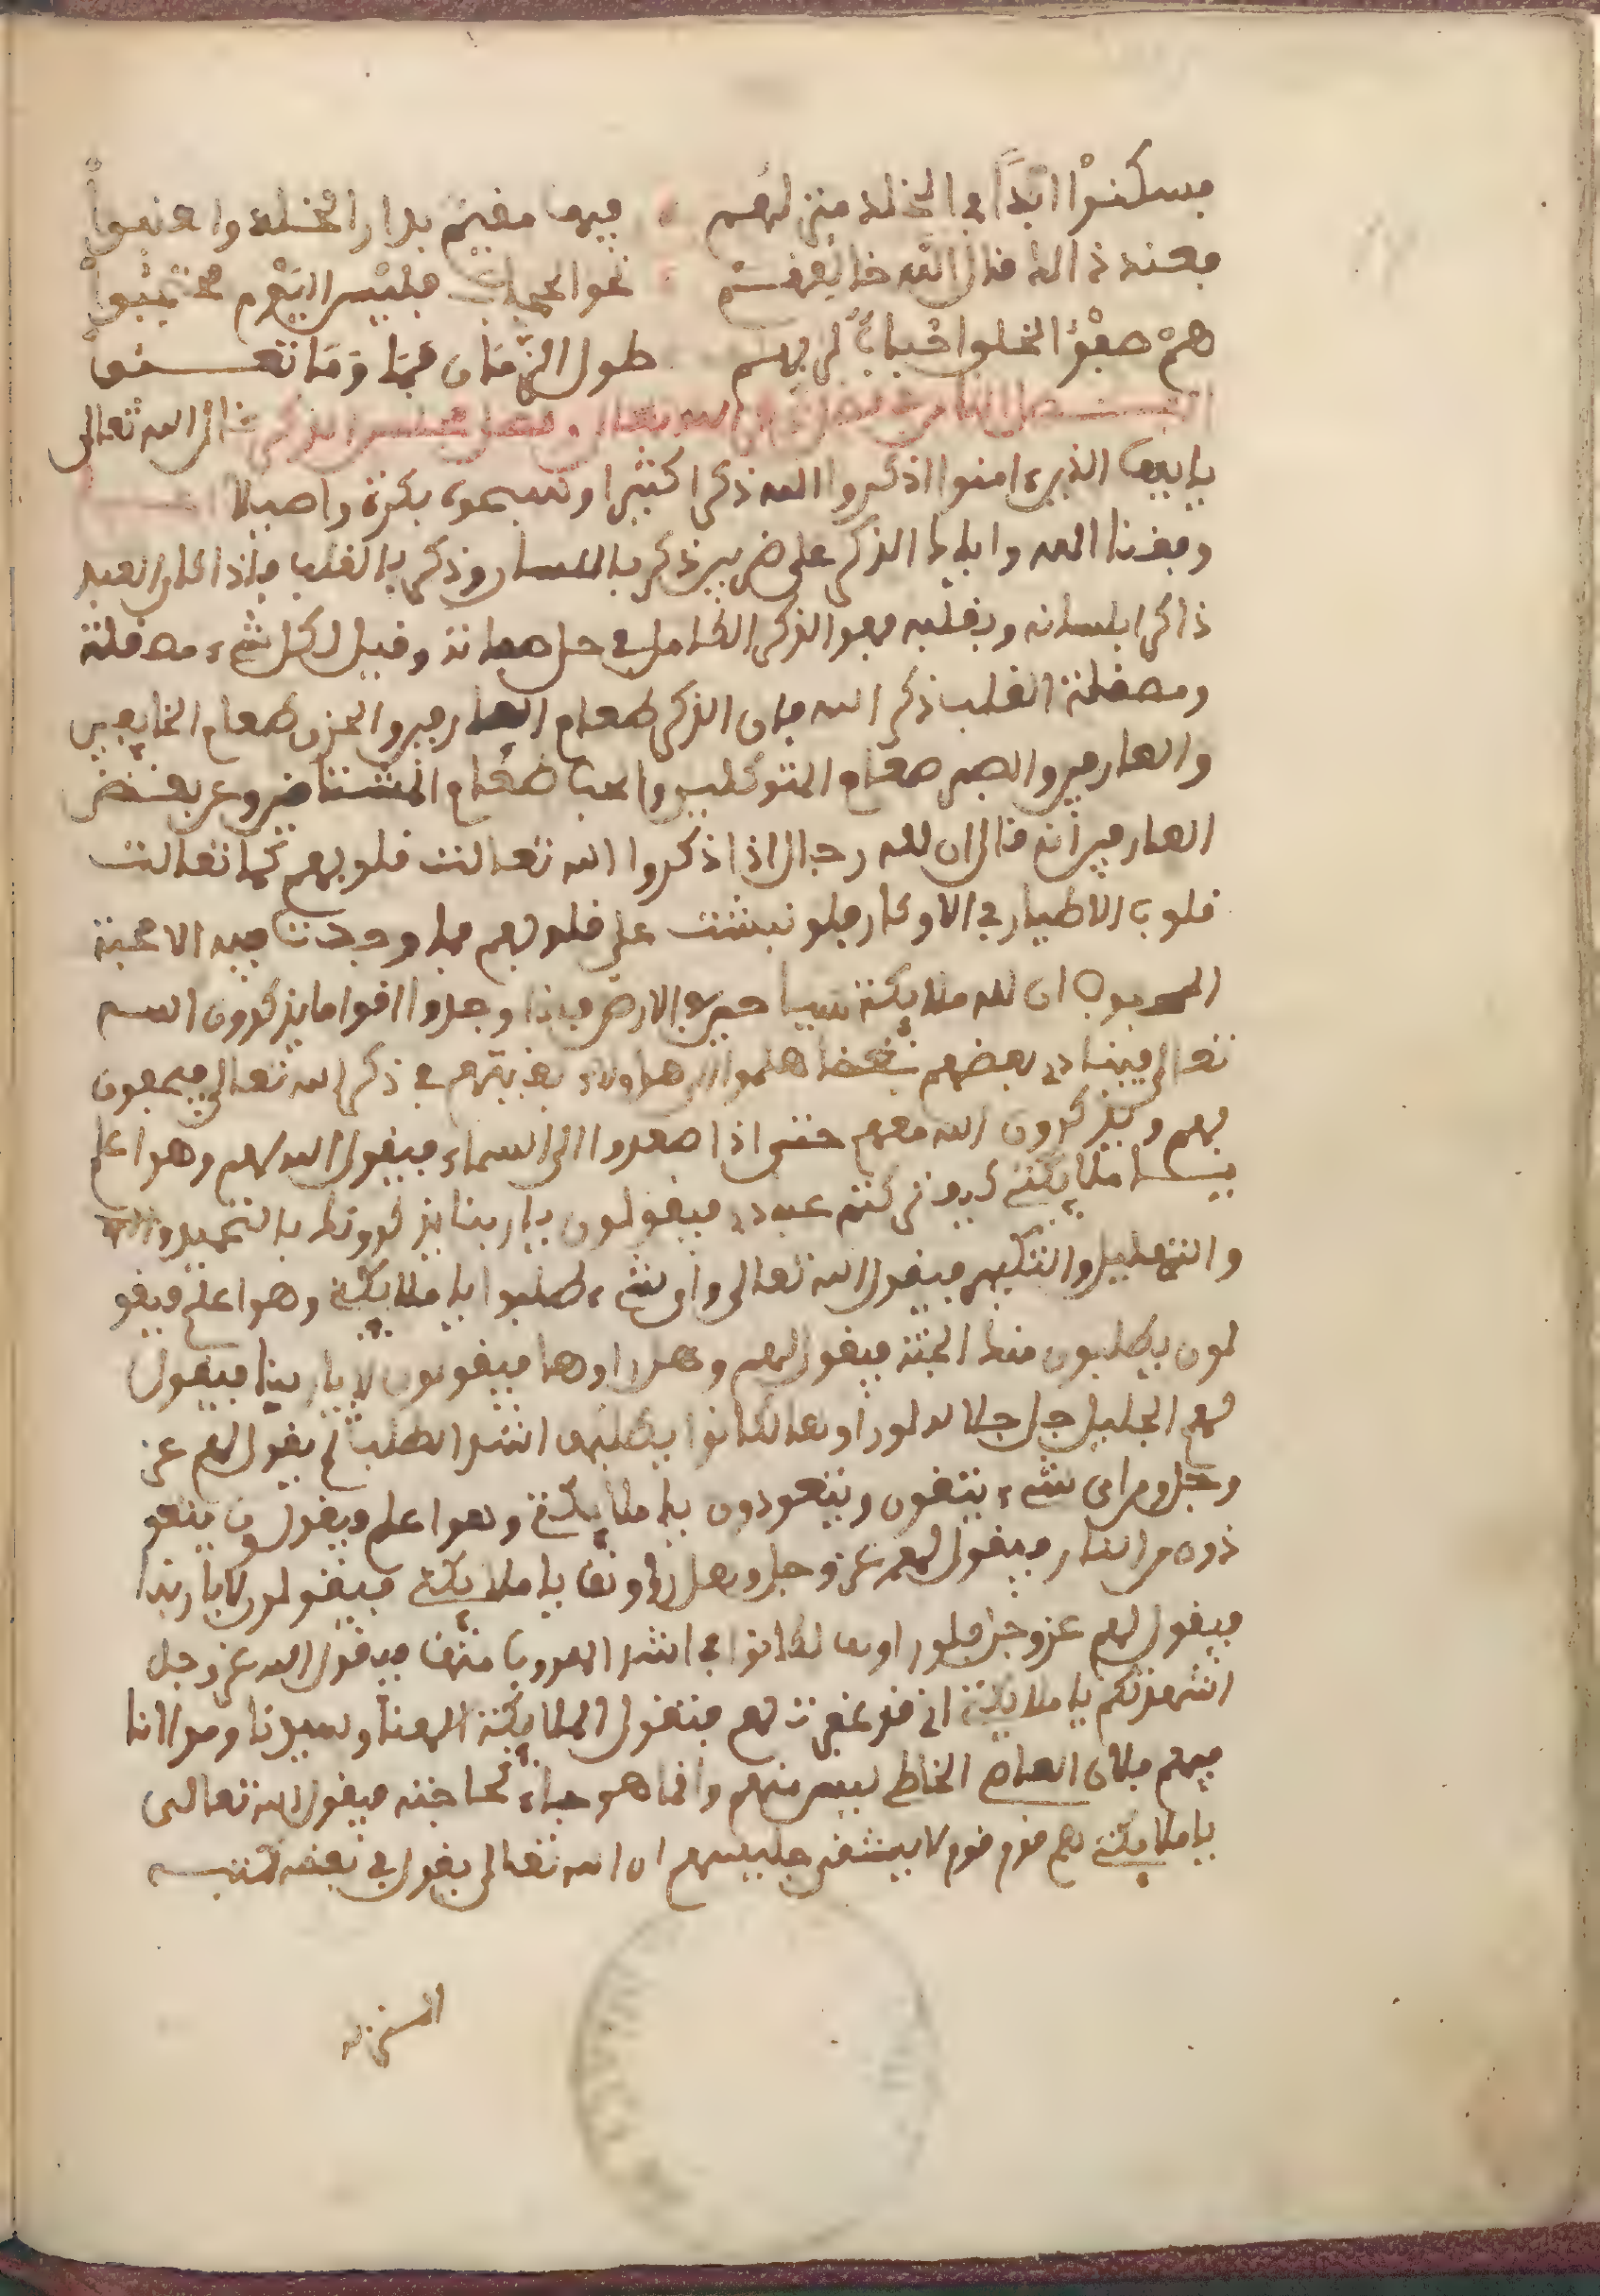 فسكنوا ابدا في الخلد منزلهم فيها مقيم بدار الخلد وا
فعند ذالك قال الله خالقهم نحو الحجاب فليس اليوم محتجبوا
هم صفوة الخلو احباب لربهم طول الزمان فما وما تعبوا
الله تعالى وفضل مجلس الذكر قال الله تعالى
يايها الذين امنوا اذكروا الله ذكرا كثيرا وسبحوه بكرة واصيلا
وفقنا الله واياك الذكر على ضربين ذكر باللسان وذكر بالقلب فاذا كان العبد
ذاكرا بلسانه وبقلبه فهو الذكر الكامل في حل صفاته وقيل لكل شيء مصقلة
ومصقلة القلب ذكر الله فان الذكر طعام العارفين والحزن طعام الخايفين
والعارفين والصبر طعام المتوكلين والحب طعام المشتاقين وعن بعض
العارفين انه قال ان لله رجال اذا ذكروا الله تعالت قلوبهم كما تعالت
قلوب الاطيار في الاوكار فلو نبشت على قلوبهم فما وجدت فيه الا محبة
المحبوب ان لله ملايكة سياحين في الارض فاذا وجدوا اقواما يذكرون الله
تعالى فينادي بعضهم بعضا هلموا الى هاولاء بغيتهم في ذكر الله تعالى فيحفون
بهم ويذكرون الله معهم حتى اذا صعدوا الى السماء فيقول الله لهم وهو اعلم
يا ملايكتي كيف تركتم عبادي فيقولون يا ربنا يذكرونك بالتحميد
والتهليل والتكبير فيقول الله تعالى واي شيء طلبوا يا ملايكتي وهو اعلم فيقو
لون يطلبون منك الجنة فيقول لهم وهل راوها فيقولون لا يا ربنا فيقول
لهم الجليل جل جلاله لو راوها لكانوا يطلبها اشد الطلب ثم يقول لهم عز
وجل ومن اي شيء يتقون ويتعوذون يا ملايكتي وهو اعلم ويقولون يتعو
ذون من النار فيقول لهم عز وجل وهل راونها يا ملايكتي فيقولون لا يا ربنا
فيقول لهم عز وجل فلو راوها لكانوا في اشد الهروب منها فيقول الله عز وجل
اشهدتكم يا ملايكتي اني قد غفرت لهم فتقول الملايكة الهنا وسيدنا ومولانا
فيهم فلان العاصي الخاطي ليس منهم وانما هو جاء لحاجته فيقول الله تعالى
يا ملايكتي هم قوم قوم لا يشقى جليسهم ان الله تعالى يقول في بعض كتبه
المنزله